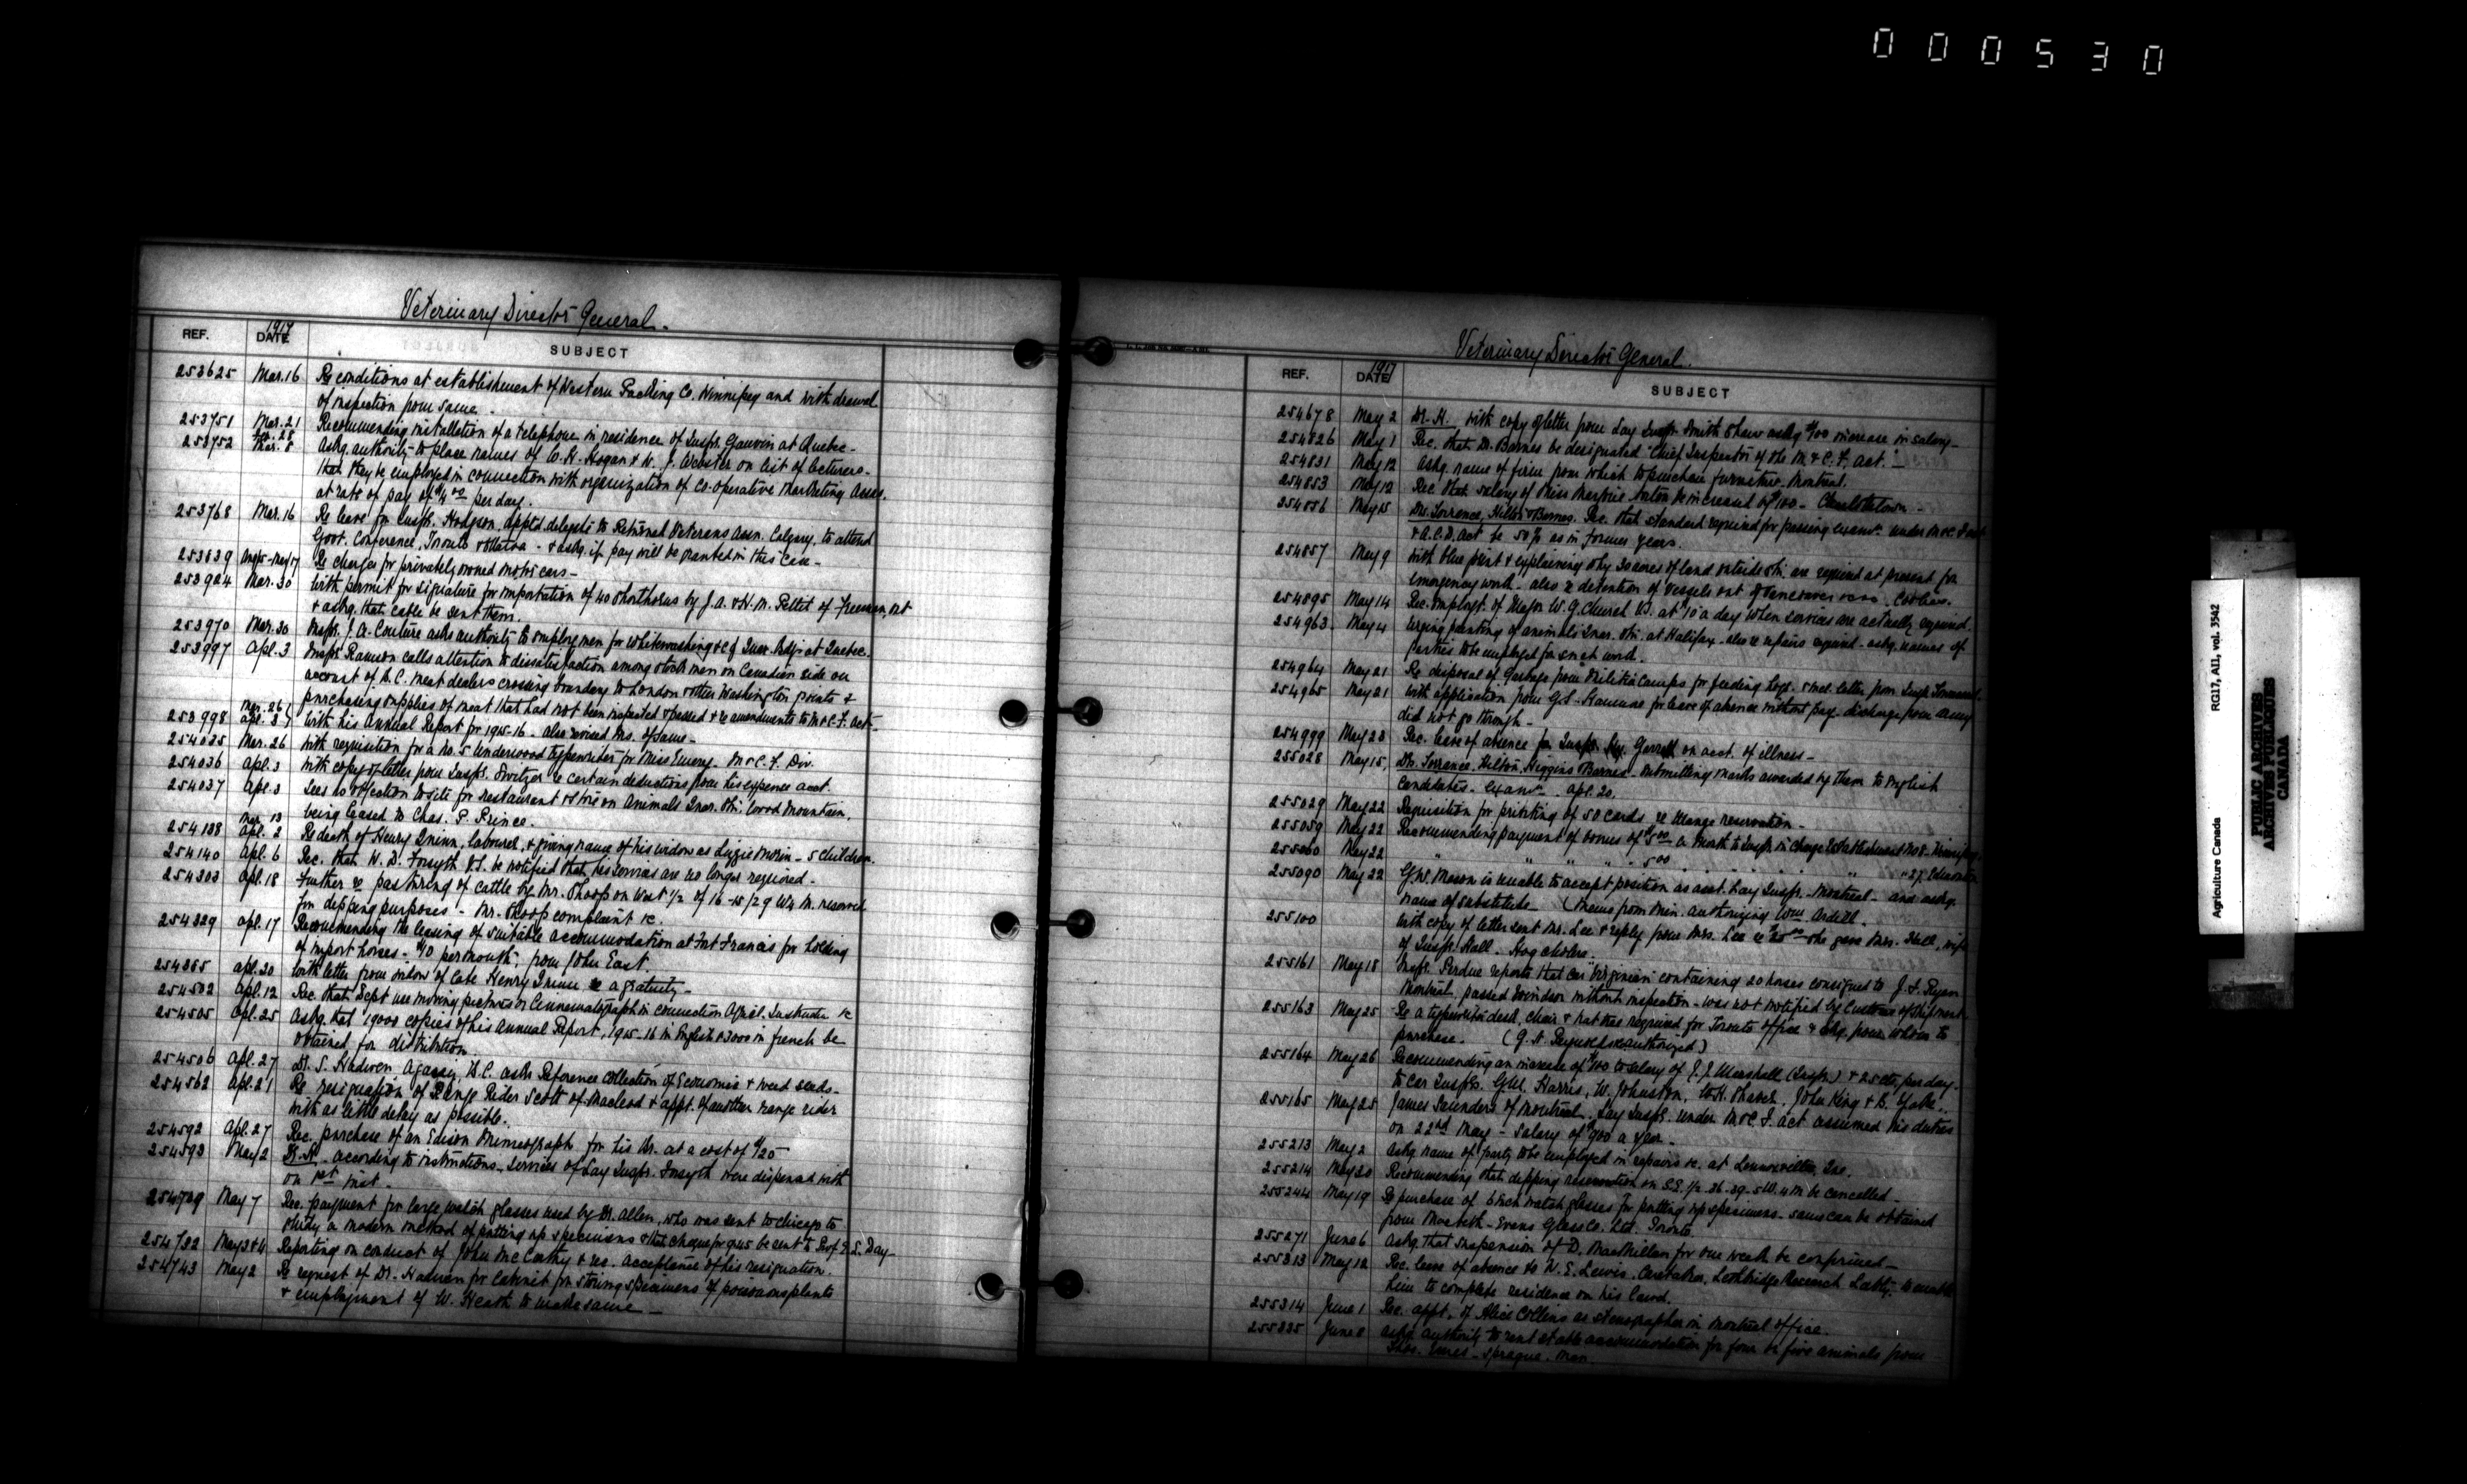 000530
Veterinary Director General.
REF. DATE 1917 SUBJECT
253625 Mar. 16 Re conditions at establishment of Western Packing Co. Winnipeg and withdrawal
of inspection from same -
253751 Mar. 21 Recommending installation of a telephone in residence of Inspr. Gauvin at Quebec -
253752 Feb. 28 Mar. 8 Askg. authority to place names of W. H. Hogan & W. J. Webster on list of lecturers -
that they be employed in connection with organization of Co-operative Marketing Assns.
at rate of pay of $4.00 per day.
253768 Mar. 16 Re leave for Inspr. Hodgson, appt'd delegate to Returned Veterans Assn. Calgary, to attend
Govt. Conference, Toronto & Ottawa - & askg. if pay will be granted in this case -
253839 May 17 Re charges for privately owned motor cars -
253924 Mar. 30 With permit for signature for importation of 40 Shorthorns by J. A. & H. M. Pettit of Freeman, Ont
& askg. that cable be sent them.
253970 Mar. 30 Inspr. J. A. Couture asks authority to employ men for whitewashing &c of Quar. Bldgs at Quebec.
253997 Apl. 3 Inspr. Ramson calls attention to dissatisfaction among stock men on Canadian side on
account of B.C. meat dealers crossing boundary to London & other Washington points &
purchasing supplies of meat that had not been inspected & passed & re amendments to M & C. F. Act -
253998 Mar. 26 Apl. 3 With his Annual Report for 1915-16 - also revised Ms. of same -
254035 Mar. 26 With requisition for a No. 5 Underwood typewriter for Miss Emery - M & C. F. Div.
254036 Apl. 3 With copy of letter from Inspr. Switzer re certain deductions from his expense acct.
254037 Apl. 3 Sees no objection to site for restaurant & store on Animals Quar. Stn. Wood Mountain,
being leased to Chas. P. Prince.
254138 Mar. 13 Apl. 2 Re death of Henry Quinn, labourer, & giving name of his widow as Lizzie Morin - 5 children.
254140 Apl. 6 Rec. that W. D. Forsyth V.S. be notified that his services are no longer required -
254303 Apl. 18 Further re pasturing of cattle by Mr. Shoop on West 1/2 of 16-15/29 W4 M. reserved
for dipping purposes - Mr. Shoop complaint &c.
254329 Apl. 17 Recommending the leasing of suitable accommodation at Fort Francis for holding
of import horses - $10 per month; from John East.
254355 Apl. 20 With letter from widow of late Henry Quinn re a gratuity -
254502 Apl. 12 Rec. that Dept use moving pictures or Cinematograph in connection Agricl. Instruction &c
254505 Apl. 25 Askg. that 19000 copies of his Annual Report, 1915-16 in English & 3000 in french be
obtained for distribution.
254506 Apl. 27 Dr. S. Hadwen Agassiz, B.C. asks Reference collection of Economic & weed seeds -
254562 Apl. 21 Re resignation of Range Rider Scott of Macleod & appt. of another range rider
with as little delay as possible.
254592 Apl. 27 Rec. purchase of an Edison Mimeograph for his Br. at a cost of $120 -
254593 May 2 Dr. H. According to instructions - Services of Lay Inspr. Forsyth were dispensed with
on 1st inst -
254709 May 7 Rec. payment for large watch glasses used by Dr. Allen, who was sent to Chicago to
study a modern method of putting up specimens & that cheque for be sent to Prof. E. S. Day -
254722 May 3 & 4 Reporting on conduct of John McCarthy & rec. acceptance of his resignation.
254743 May 2 Re request of Dr. Hadwen for Cabinet for storing specimens of poisonous plants
& employment of W. Heath to make same -
Veterinary Director General.
REF. DATE 1917 SUBJECT
254678 May 2 Dr. H. with copy of letter from Lay Inspr. Smith Shaw askg $100 increase in salary -
254826 May 1 Rec. that Dr. Barnes be designated "Chief Inspector of the M & C. F. Act." -
254831 May 12 Askg. name of firm from which to purchase furniture - Montreal.
254853 May 12 Rec. that salary of Miss Marjorie be increased by $100 - Charlottetown -
254856 May 15 Drs. Torrence, Hilton & Barnes. Rec. that standard required for passing examn. under M & C. F. act
& A.C.D. act be 50% as in former years.
254857 May 9 With blue print & explaining why 30 acres of land outside stn. are required at present for
emergency work - also re detention of vessels out of Vancouver
254895 May 14 Rec. employt. of Major W. G. Church V.S. at $10 a day when services are actually required.
254963 May 4 Urging painting of animals Quar. Stn. at Halifax - also re repairs required - askg. names of
parties to be employed for such work.
254964 May 21 Re disposal of garbage from Militia Camps for feeding hogs - & incl. letter from Inspr.
254965 May 21 With application from G. S. for leave of absence without pay - discharge from army
did not go through -
254999 May 23 Rec. leave of absence for Inspr. Garrett on acct. of illness -
255028 May 15, Drs. Torrence, Hilton, Higgins & Barnes - submitting marks awarded by them to English
Candidates - examn. Apl. 20.
255029 May 22 Requisition for printing of 50 cards re Mange reservation -
255059 May 22 Recommending payment of bonus of $5.00 a month to Inspr. in charge Establishment No 8 - Winnipeg
255060 May 22 " " " " 5.00 " " " " " 27 Edmonton
255090 May 22 G. W. Mason is unable to accept position as asst. Lay Inspr. - Montreal - and askg.
name of substitute - (Memo from Min. authorizing Wm. Ardell.
255100 With copy of letter sent Mr. Lee & reply from Mrs. Lee re $20.00 she gave Mrs. Hall, wife
of Inspr. Hall. Hog cholera.
255161 May 18 Inspr. Perdue reports that car "Virginian" containing 20 horses consigned to J. F. Ryan
Montreal, passed Windsor without inspection - was not notified by Customs of shipment.
255163 May 25 Re a typewriter desk, chair & hat tree required for Toronto office & askg. from whom to
purchase. (G. N. Reynolds authorized)
255164 May 26 Recommending an increase of $100 to salary of J. J. Marshall (Inspr.) & 25 cts. per day -
to car Insprs. G. W. Harris, W. Johnston, W. H. Shaver, John King & B.
255165 May 25 James Saunders of Montreal, Lay Inspr. under M & C. F. act assumed his duties
on 22nd May - salary of $900 a year -
255213 May 2 Askg name of party to be employed in repairs &c. at Lennoxville, Que.
255214 May 30 Recommending that dipping reservation on S.E. 1/2 - 36-39-5 W. 4 M be cancelled -
255244 May 19 Re purchase of 6 inch watch glasses for putting up specimens - same can be obtained
from Macbeth-Evans Glass Co. Ltd. Toronto.
255271 June 6 Askg. that suspension of D. MacMillan for one week be confirmed -
255313 May 12 Rec. leave of absence to N. E. Lewis, Caretaker, Lethbridge Research Labty. to enable
him to complete residence on his land.
255314 June 1 Rec. appt. of Alice Collins as stenographer in Montreal office.
255335 June 8 Askg. authority to rent stable accommodation for four to five animals from
Thos. - Sprague - Man.
Agriculture Canada RG17, AII, vol. 3542
PUBLIC ARCHIVES
ARCHIVES PUBLIQUES
CANADA